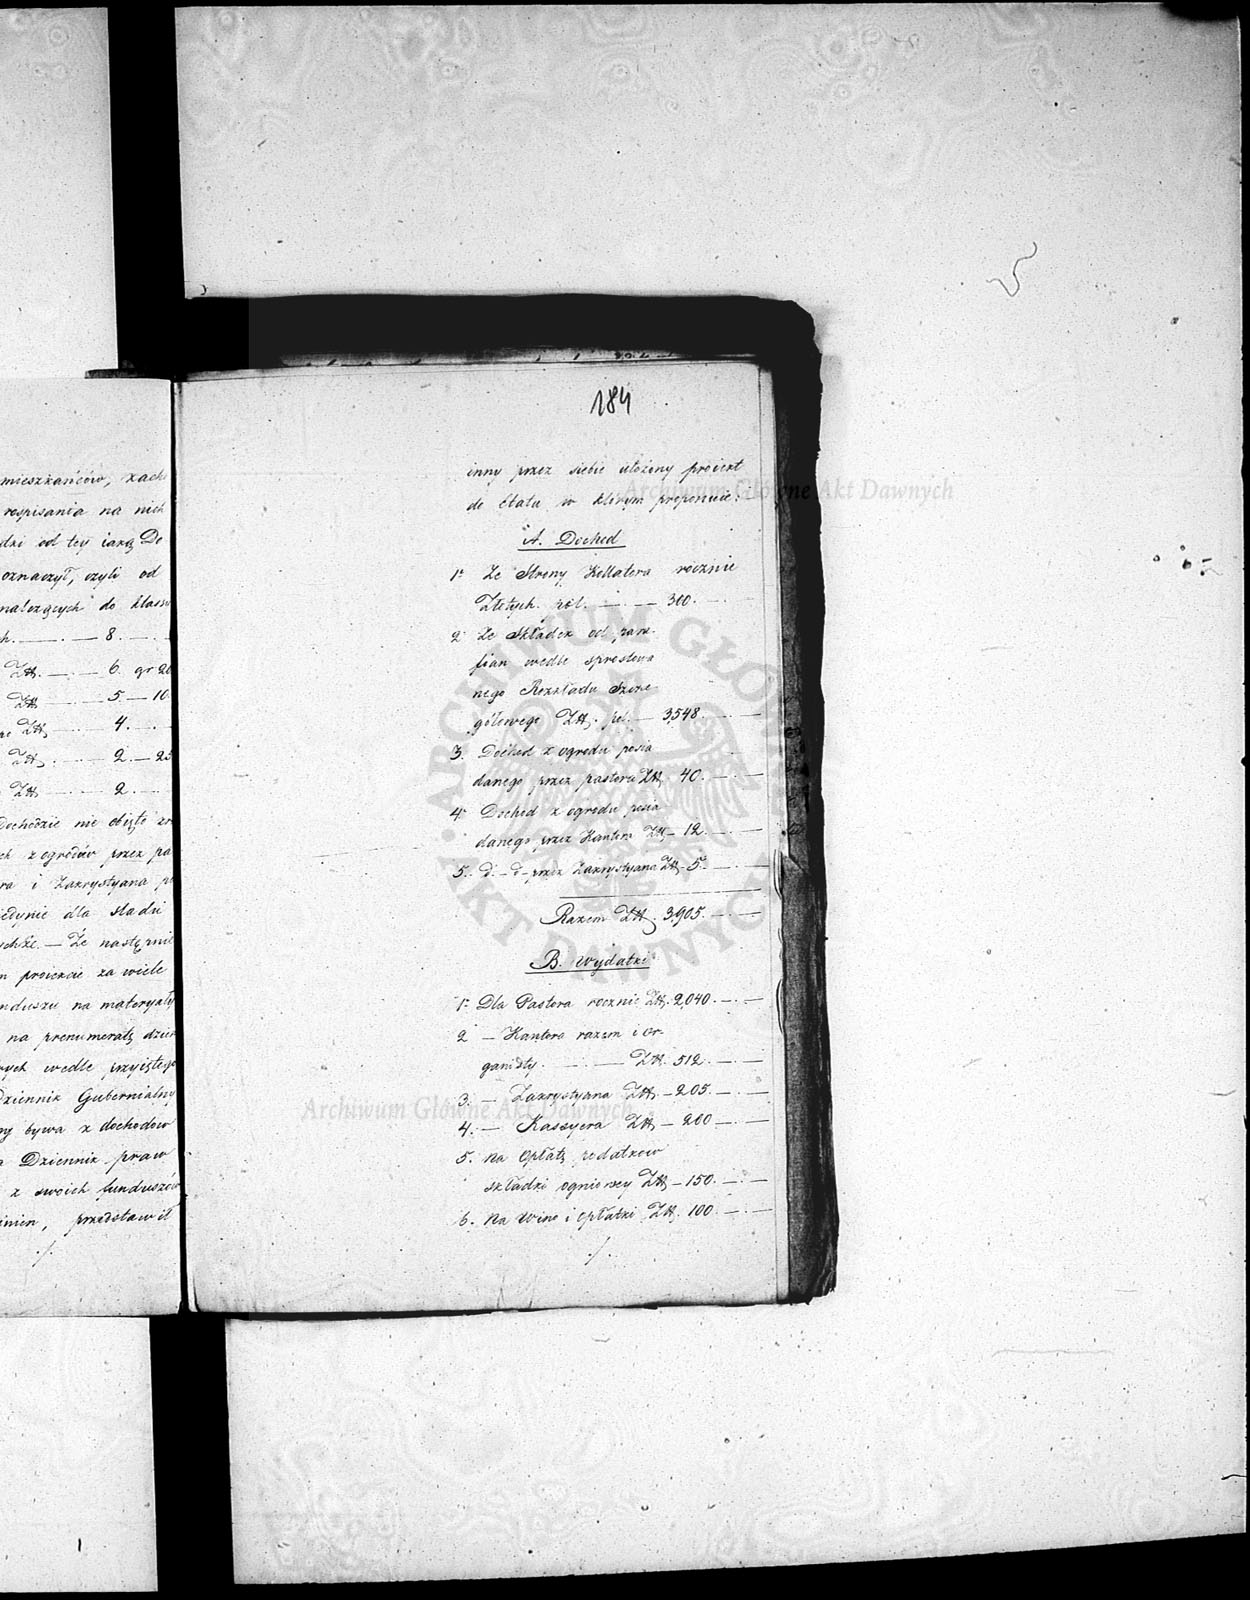 mieszkańców, zach
rospisania na nich
dzki od tey iaką Do
oznaczył, czyli od
należących do klassy
h. — . — 8. — . —
Złt. — . — 6. gr 20
Złt. — . — 5. — 10
Złt. — . — 4. — . —
Złt. — . — 2. — 25
Złt. — . — 2. — . —
Dochodzie nie obięto
ch z ogrodów przez pa
ra i Zakrystyana
iedynie dla
— Że następnie
m proiekcie za wiele
nduszu na materyały
na prenumeratę dzien
nych wedle przyiętego
Dziennik Gubernialny
ny bywa z dochodow
a Dziennik praw
z swoich funduszów
, przedstawił
./.
184
inny przez siebie ułożony proiekt
do Etatu w którym proponuie:
A. Dochod
1° Ze Strony Kollatora rocznie
Złotych. pol. — . — 300. — . —
2° Ze Składek od para-
fian wedle sprostowa
nego Rozkładu Szcze-
gółowego Złt. pol. — 3,548. — . —
3. Dochod z ogrodu posia
danego przez pastora Złt. 40. — . —
4° Dochod z ogrodu posia
danego przez Kantora Złt. — 12. — . —
5. d° — d° przez Zakrystyana Złt. 5. — . —
Razem Złt. 3,905. — . —
B. Wydatki
1° Dla Pastora rocznie Złt. 2,040. — . —
2 — Kantora razem i Or-
ganisty. — . — Złt. 512. — . —
3. — Zakrystyana Złt. — 205. — . —
4. — Kassyera Złt. — 200 — . —
5. Na Opłatę podatkow
składki ogniowey Złt. — 150. — . —
6. Na Wino i opłatki Złt. 100. — . —
./.
Archiwum Główne Akt Dawnych
ARCHIWUM GŁÓWNE AKT DAWNYCH
Archiwum Główne Akt Dawnych